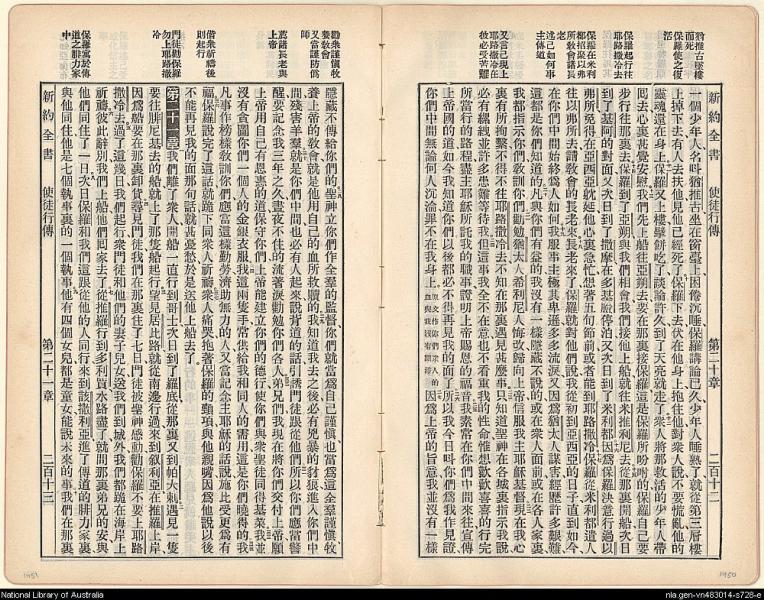 新約全書 使徒行傳 第二十章 二百十二
猶推古墜樓
而死
保羅使之復
活
保羅起行往
耶路撒冷去
保羅在米利
都招聚以弗
所教會諸長
老
述己如何事
主傳道
又言己現上
耶路撒冷在
彼必受苦難
一個少年人名叫猶推古坐在窗臺上因倦沉睡保羅講論已久少年人睡熟了就從第三層樓
上掉下去有人去扶他見他已經死了保羅下去伏在他身上抱住他對眾人說不要慌亂他的
靈魂還在身上保羅又上樓擘餅吃了談論許久到了天亮就走了眾人將那救活的少年人帶
回去心裏甚覺安慰我們先上船往亞朔去要在那裏接保羅這是保羅所吩咐的保羅自己要
步行往那裏去保羅到了亞朔與我們相會我們接他上船就往米推利尼去從那裏開船次日
到了基阿的對面又次日到了撒摩在多基臉停泊又次日到了米利都因為保羅決意行過以
弗所免得在亞西亞就延他心裏急忙想著五旬節前或者能到耶路撒冷保羅從米利都遣人
往以弗所去請教會的長老來長老來了保羅就對他們說我從初到亞西亞的日子直到如今
在你們中間始終為人如何我服事主極其卑遜多多流淚又因猶太人謀害經歷許多艱難
這都是你們知道的凡與你們有益的我沒有一樣隱藏不說的或在眾人面前或在各人家裏
我都指示你們教訓你們勸勉猶太人希利尼人悔改歸向上帝信服我主耶穌基督現在我心
裏有所拘繫不得不往耶路撒冷去不知在那裏遇見甚麼事只知道聖神在各城裏指示我說
必有縲絏並許多患難等待我但這事我全不在意也不看重我的性命惟想歡歡喜喜的行完
所當行的路程盡主耶穌所託我的職事證明上帝賜恩的福音我素常在你們中間來往宣傳
上帝國的道如今我知道你們以後都必不得再見我的面了所以我今日呌你們為我作見證
你們中間無論何人沉淪罪不在我身上因為上帝的旨意我並沒有一樣
勸眾謹慎牧
養教會
又當謹防偽
師
薦諸長老與
上帝
偕眾祈禱後
則起行
門徒勸保羅
勿上耶路撒
冷
保羅寓於傳
道之腓力家
中
隱藏不傳給你們的聖神立你們作全羣的監督你們就當為自己謹慎也當為這全羣謹慎牧
養上帝的教會就是他用自己的血所救贖的我知道我去之後必有兇暴的豺狼進入你們中
間殘害羊羣就是你們中間也必有人起來說背道的話引誘門徒跟從他們所以你們應當警
醒要記念我三年之久晝夜不住的流著淚勸勉你們各人弟兄們我現在將你們交付上帝願
上帝用自己有恩惠的道保守你們上帝能建立你們的德行使你們與眾聖徒同得基業我並
沒有貪圖你們一個人的金銀衣服我這兩隻手常供給我和同人的需用這是你們曉得的我
凡事作榜樣教訓你們應當這樣勤勞濟助無力的人又當記念主耶穌的話說施比受更為有
福保羅說完了這話就跪下同眾人祈禱眾人痛哭抱著保羅的頸項與他親嘴因為他說以後
不能再見我的面那句話就甚憂愁於是送他上船去了
第二十一章 我們離了眾人開船一直行到哥士次日到了羅底從那裏又到帕大喇遇見一隻
要往腓尼基去的船就上了那隻船起行望見居比路就從南邊行過來到敘利亞在推羅上岸
因為船要在那裏卸貨尋見門徒我們在那裏住了七日門徒被聖神感動勸保羅不要上耶路
撒冷去過了這幾日我們起行眾門徒和他們的妻子兒女送我們到城外我們都跪在海岸上
祈禱彼此辭別我們上船他們回家去了從推羅行到多利買水路盡了就問那裏弟兄的安與
他們同住了一日次日保羅和我們這跟從他的人同行來到該撒利亞進了傳道的腓力家裏
與他同住他是七個執事裏的一個執事他有四個女兒都是童女能說未來的事我們在那裏
新約全書 使徒行傳 第二十一章 二百十三
1451
1450
National Library of Australia
nla.gen-vn483014-s728-e